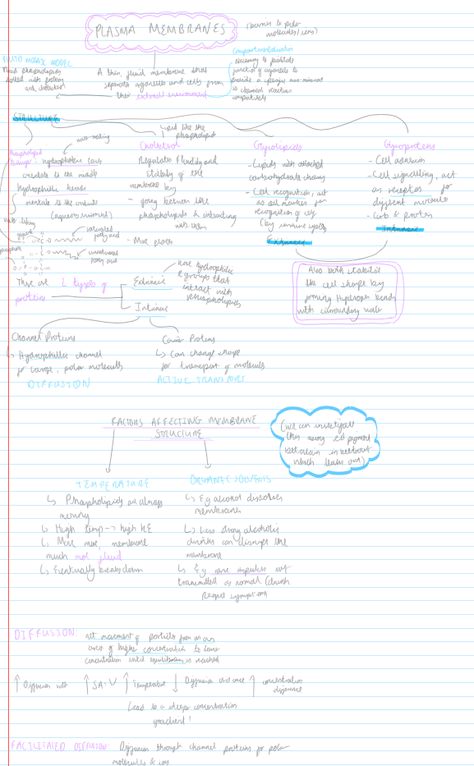 PLASMA MEMBRANES
(barriers to polar
molecules/ions)
FLUID MOSAIC MODEL
phospholipids
with protein
A thin, fluid membrane that
separates organelles and cells from
their external environment
Compartmentalisation
necessary to
function of organelles to
provide a specific environment
chemical reaction
STRUCTURE
Phospholipid
Bilayer
hydrophobic tails
orientate to the middle
Hydrophilic heads
orientate to the outside
(aqueous environment)
water loving
saturated
fatty acid
unsaturated
fatty acid
Cholesterol
Regulates fluidity and
stability of the
membrane by
going between the
phospholipids & interacting
with them
Glycolipids
- Lipids with attached
carbohydrate chains
- Cell recognition, act
as cell marker for
recognition of
(by immune system)
Extrinsic
Glycoproteins
- Cell adhesion
- Cell signalling, act
as receptors for
different molecules
- Carb & protein
Intrinsic
Also both stabilise
the cell shape by
forming Hydrogen bonds
with surrounding water
There are 2 types of
proteins
Extrinsic
have hydrophilic
R groups that
interact with
phospholipids
Intrinsic
Channel Proteins
↳ Hydrophilic channel
for large, polar molecules
DIFFUSION
Carrier Proteins
↳ Can change shape
for transport of molecules
ACTIVE TRANSPORT
FACTORS AFFECTING MEMBRANE
STRUCTURE
(we can investigate
this using
pigment
betalain in beetroot
which leaks out)
TEMPERATURE
↳ Phospholipids are always
moving
↳ High temp → high KE
↳ Move more, membrane
much more fluid
↳ Eventually breaks down
ORGANIC SOLVENTS
↳ Eg alcohol dissolves
membranes
↳ Less strong alcoholic
drinks can disrupt the
membrane
↳ Eg nerve impulses not
transmitted as normal (drunk
people symptoms)
DIFFUSION:
net movement of particles from an
area of higher concentration to lower
concentration until equilibrium is reached
↑ Diffusion rate ↑ SA:V ↑ temperature ↓ Diffusion distance ↑ concentration
difference
Lead to a steeper concentration
gradient!
FACILITATED DIFFUSION: Diffusion through channel proteins for polar
molecules & ions